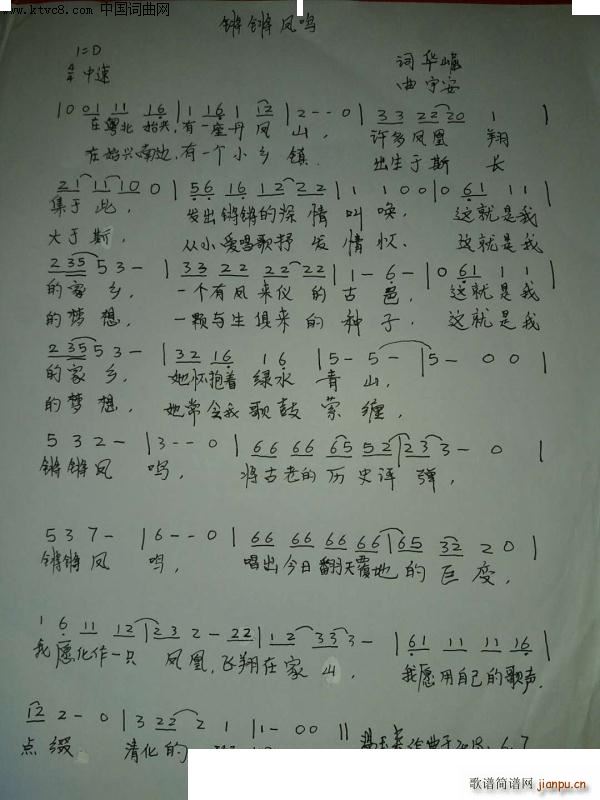 www.ktvc8.com 中国词曲网
锵锵凤鸣
1=D
4/4 中速
词 华嵘
曲 宇安
|0 01 11 16|1 16 1 12|2--0|33 22 20 1|
在粤北抬头,有一座丹凤山, 许多凤凰翔
在始兴南边,有一个小乡镇. 出生于斯长
21 11 10 0|56 16 12 22|1 1 00|0 61 11|
集于此, 发出锵锵的深情叫唤. 这就是我
大于斯, 从小爱唱歌抒发情怀. 这就是我
235 53-|33 22 22 22|1-6-|0 61 11|
的家乡, 一个有凤来仪的古邑, 这就是我
的梦想, 一颗与生俱来的种子. 这就是我
235 53-|32 16 16|5-5-|5-00|
的家乡, 她怀抱着绿水青山,
的梦想, 她常令我歌鼓萦缠,
532-|3--0|66 66 65 52|23 3-0|
锵锵凤鸣, 将古老的历史译弹,
537-|6--0|66 66 66 66|65 32 20|
锵锵凤鸣, 唱出今日翻天覆地的巨变,
1 6 11 12|23 2-22|12 33 3-|61 11 11 16|
我愿化作一只凤凰,飞翔在家山, 我愿用自己的歌声.
12 2-0|3 22 2 1|1-00||
点缀 清化的
作曲于2013.6.7
歌谱简谱网
jianpu.cn